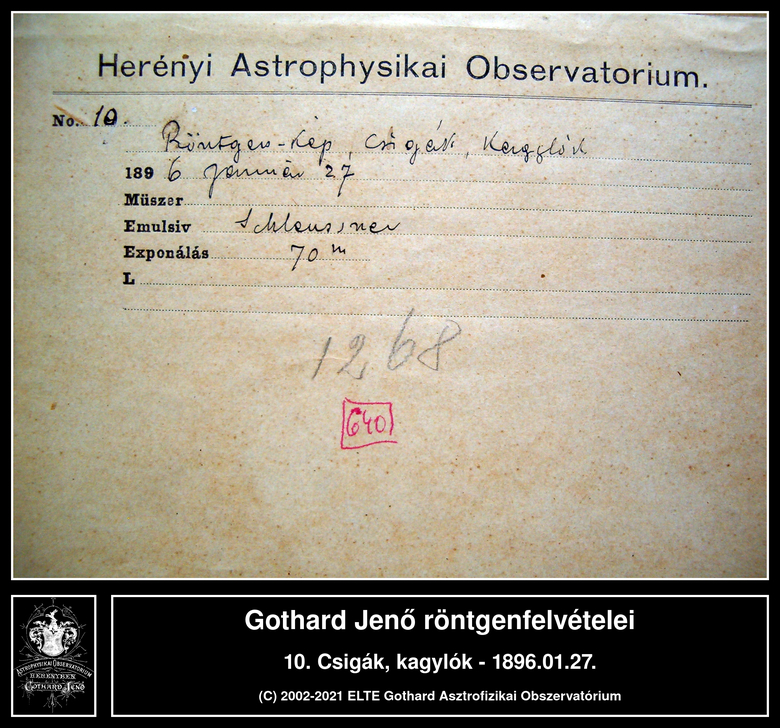 Herényi Astrophysikai Observatorium.
No. 10.
Röntgen-kép, Csigák, Kagylók
1896 Január 27
Műszer
Emulsiv Schleussner
Exponálás 70 m
L
1268
640
ASTROPHYSIKAI OBSERVATORIUM
HERÉNYBEN
GOTHARD JENŐ
Gothard Jenő röntgenfelvételei
10. Csigák, kagylók - 1896.01.27.
(C) 2002-2021 ELTE Gothard Asztrofizikai Obszervatórium